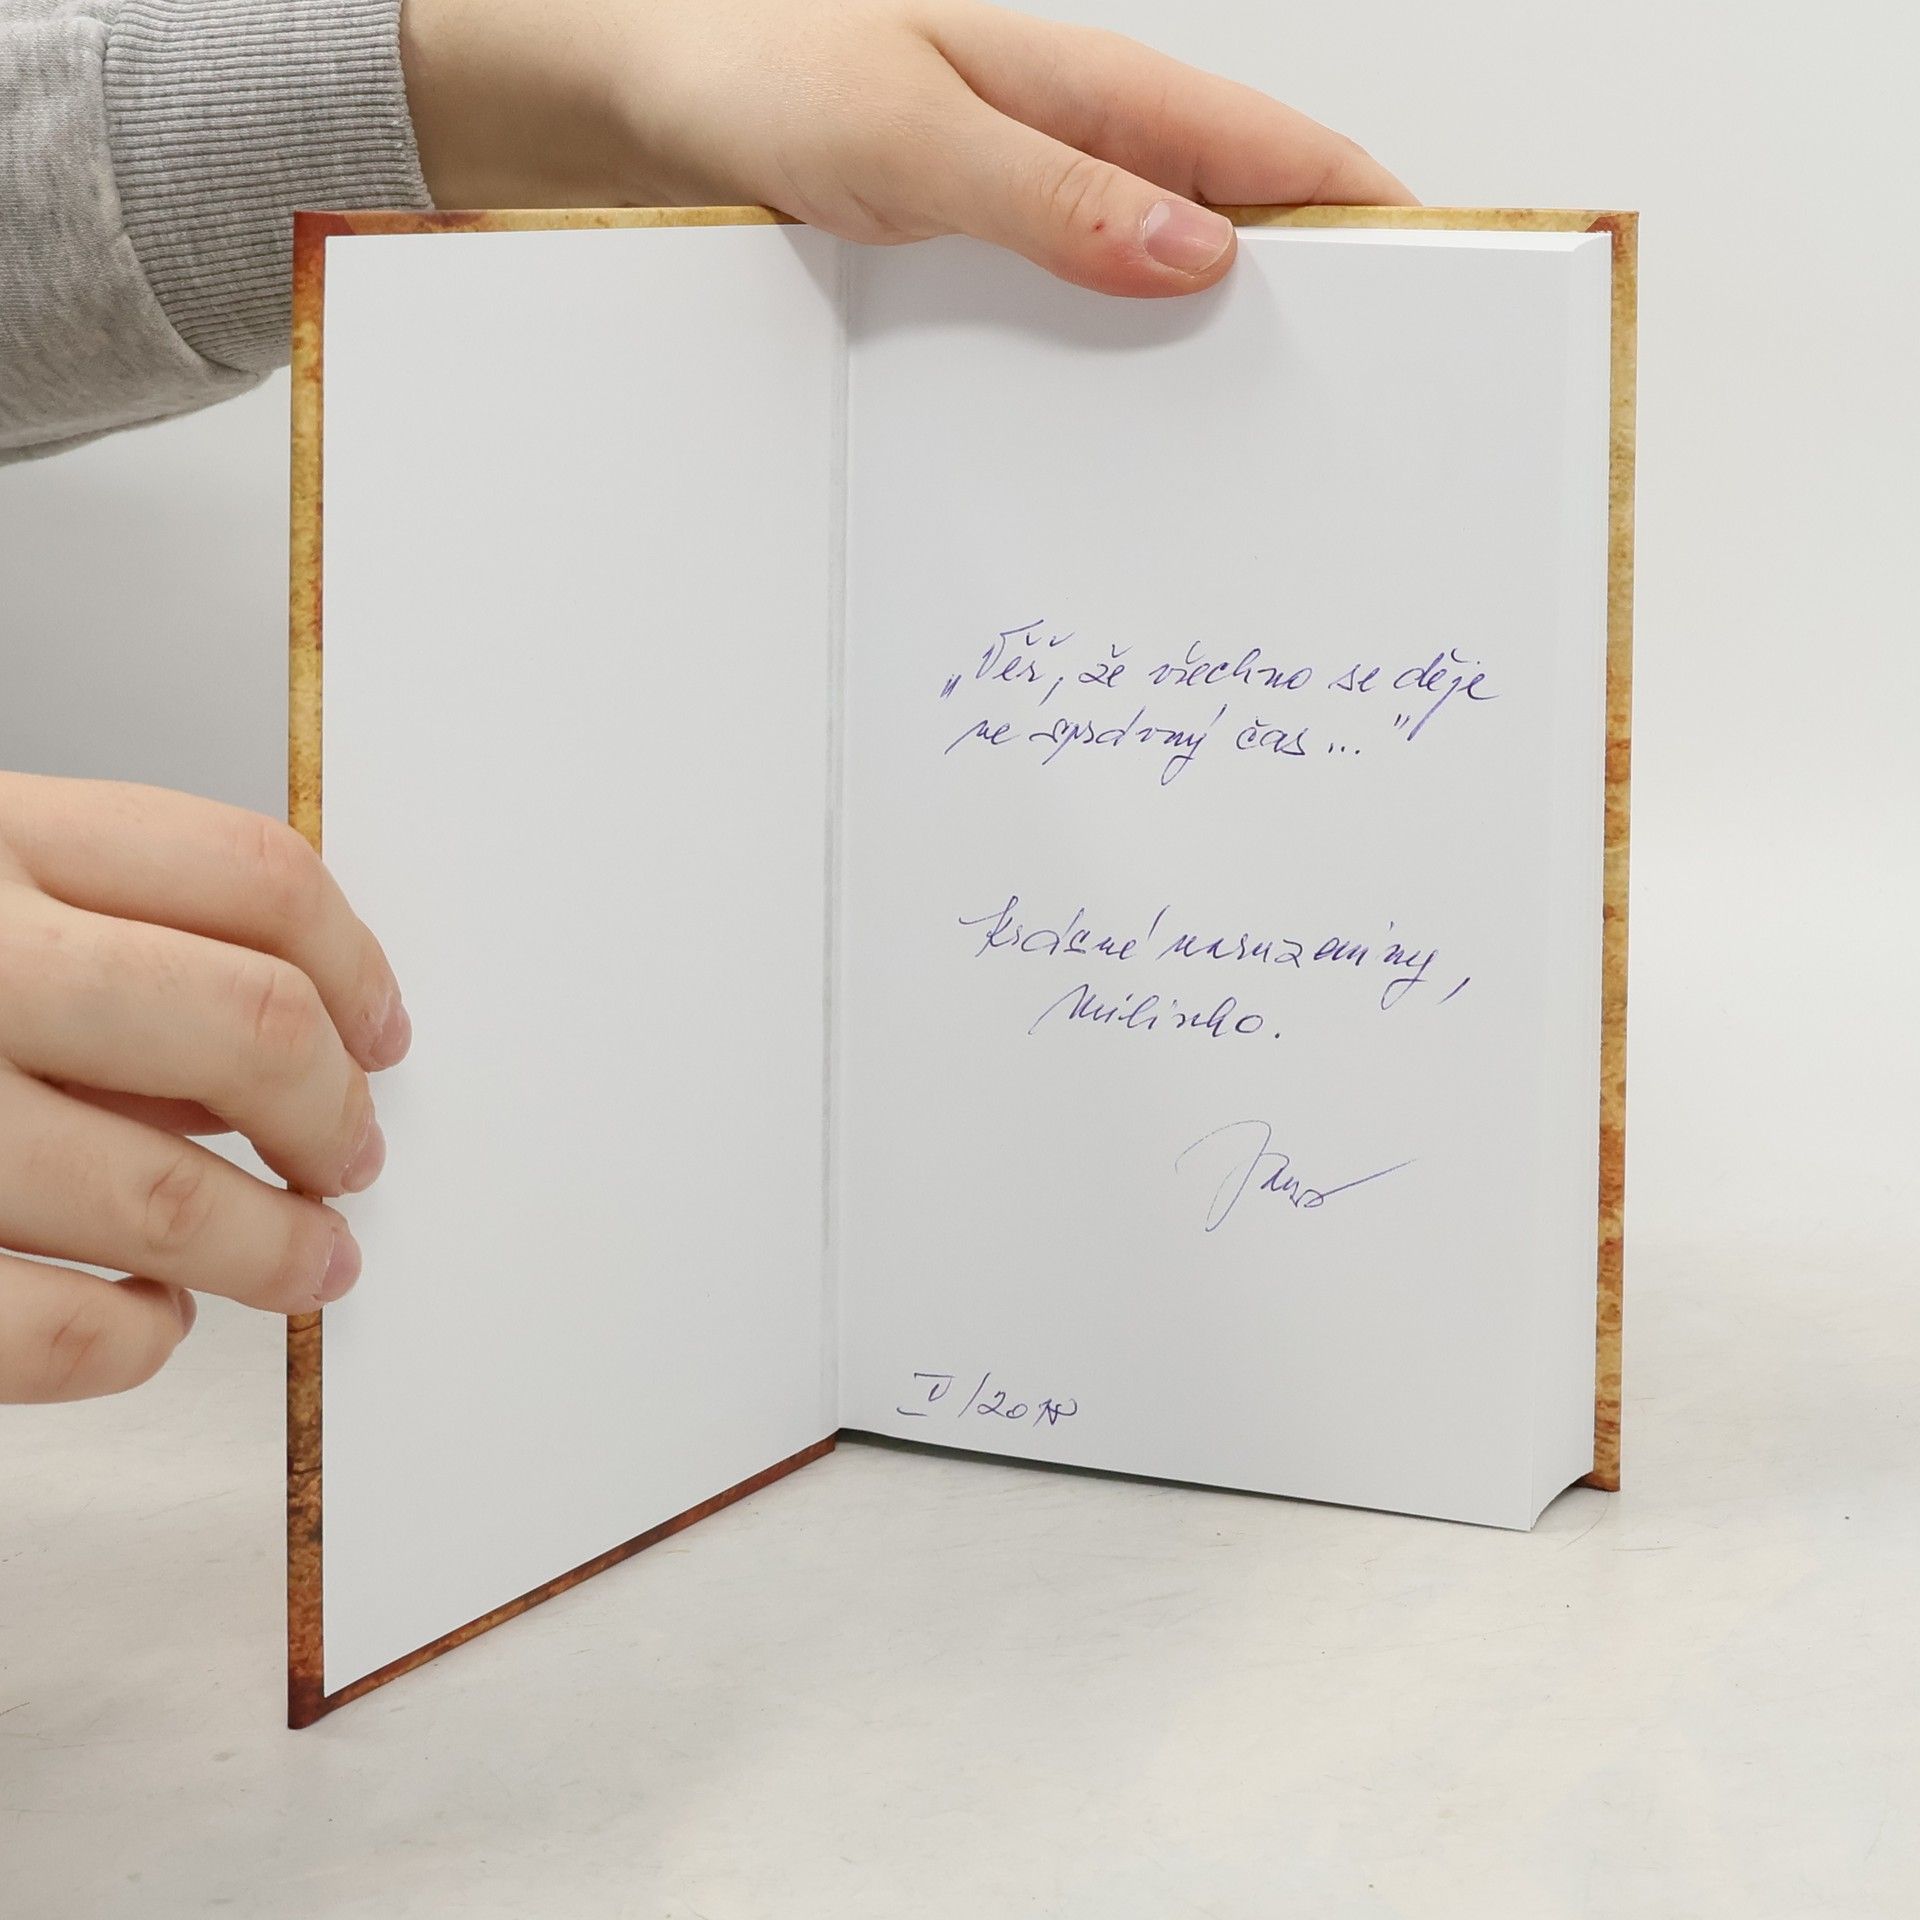 „Věř, že všechno se děje
ve správný čas..."
Krásné narozeniny,
V/2018